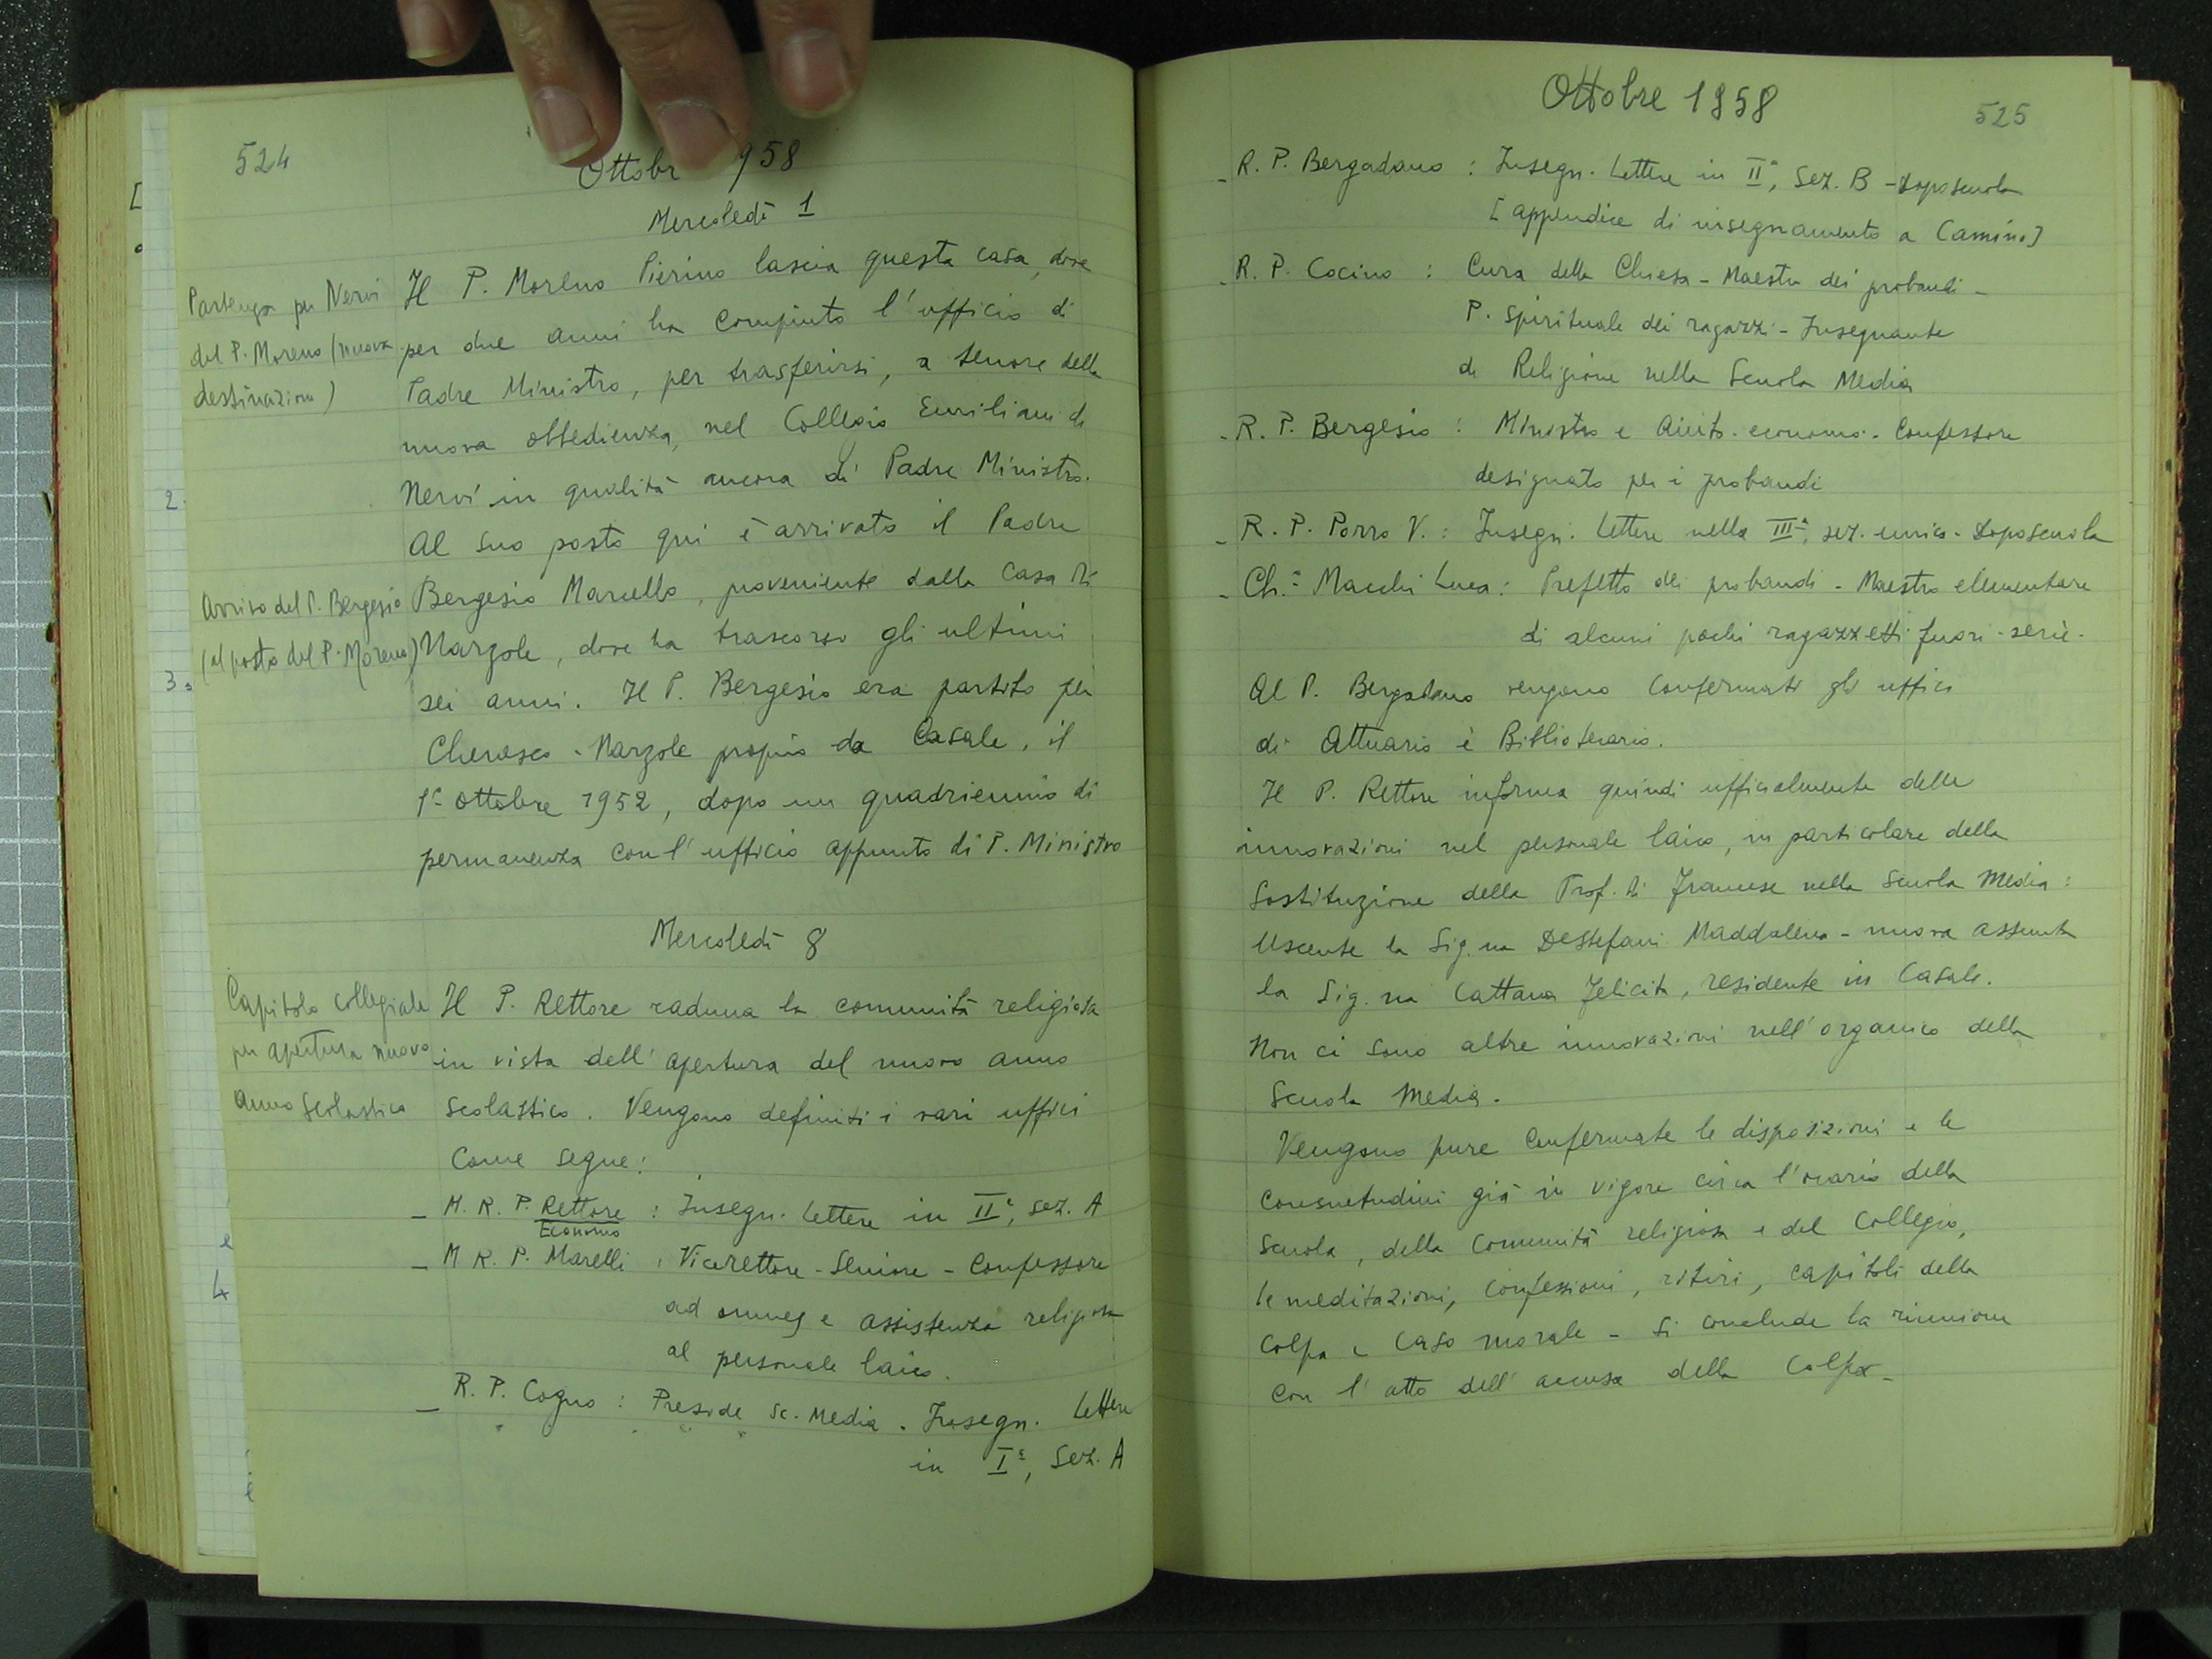 524
Ottobr 958
Mercoledì 1
Partenza per Nervi
del P. Moreno (nuova
destinazione)
Il P. Moreno Pierino lascia questa casa, dove
per due anni ha compiuto l'ufficio di
Padre Ministro, per trasferirsi, a tenore della
nuova obbedienza, nel Collegio Emiliani di
Nervi in qualità ancora di Padre Ministro.
Al suo posto qui è arrivato il Padre
Arrivo del P. Bergesio
(al posto del P. Moreno)
Bergesio Marcello, proveniente dalla casa di
Narzole, dove ha trascorso gli ultimi
sei anni. Il P. Bergesio era partito per
Cherasco - Narzole proprio da Casale, il
1° ottobre 1952, dopo un quadriennio di
permanenza con l'ufficio appunto di P. Ministro
Mercoledì 8
Capitolo Collegiale
per apertura nuovo
anno scolastico
Il P. Rettore raduna la comunità religiosa
in vista dell'apertura del nuovo anno
scolastico. Vengono definiti i vari uffici
come segue:
- M. R. P. Rettore : Insegn. Lettere in IIª, sez. A
Economo
- M R. P. Marelli : Vicerettore - Seniore - Confessore
ad omnes e assistenza religiosa
al personale laico.
- R. P. Cogno : Preside Sc. Media - Insegn. Lettere
in Iª, Sez. A
2.
3.
4
Ottobre 1958
525
- R. P. Bergadano : Insegn. Lettere in IIª, Sez. B - Doposcuola
[appendice di insegnamento a Camino]
- R. P. Cocino : Cura della Chiesa - Maestro dei probandi -
P. Spirituale dei ragazzi - Insegnante
di Religione nella Scuola Media
- R. P. Bergesio : Ministro e Aiuto-economo - Confessore
designato per i probandi
- R. P. Porro V. : Insegn. Lettere nella IIIª, sez. unica - Doposcuola
- Ch.° Macchi Luca : Prefetto dei probandi - Maestro elementare
di alcuni pochi ragazzetti fuori-serie.
Al P. Bergadano vengono confermati gli uffici
di Attuario e Bibliotecario.
Il P. Rettore informa quindi ufficialmente delle
innovazioni nel personale laico, in particolare della
sostituzione della Prof. di Francese nella Scuola Media:
uscente la Sig.na Destefani Maddalena - nuova assunta
la Sig.na Cattana Felicita, residente in Casale.
Non ci sono altre innovazioni nell'organico della
Scuola Media.
Vengono pure confermate le disposizioni e le
consuetudini già in vigore circa l'orario della
Scuola, della Comunità religiosa e del Collegio,
le meditazioni, confessioni, ritiri, capitoli della
colpa e Caso morale - Si conclude la riunione
con l'atto dell'accusa della Colpa -